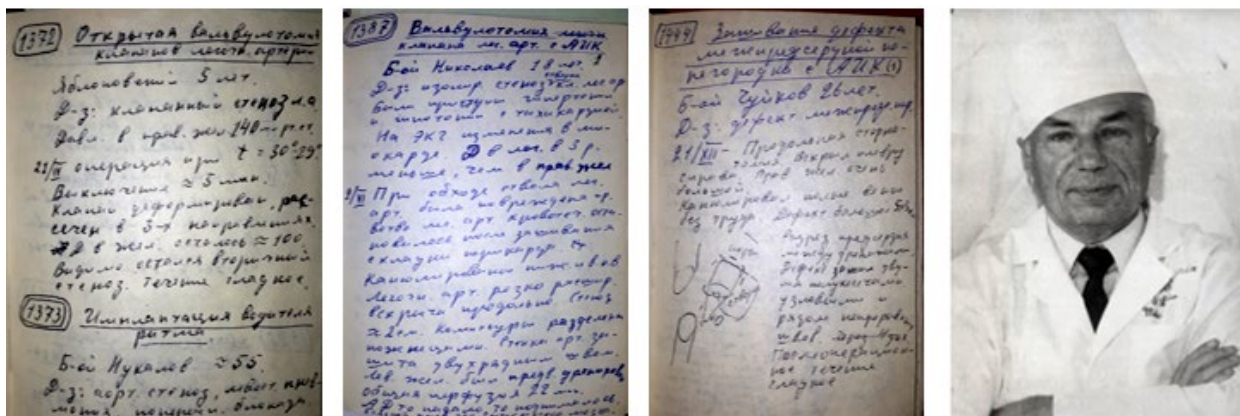 1372 Открытая вальвулотомия
клапанов легочн. артерии
Яблоновский 5 лет.
Д-з: клапанный стеноз л.а.
Давл. в прав. жел. 140 мм рт. ст.
операция при t = 30°-29°
Выключение ≈ 5 мин.
Клапан деформирован, рас-
сечен в 3-х направлениях.
Д в жел. осталось ≈ 100.
Видимо остался вторичный
стеноз. Течение гладкое.
1373 Имплантация водителя
ритма
Б-ой Нукалов ≈ 55.
Д-з: аорт. стеноз,
блокада
1387 Вальвулотомия
клапана лег. арт. с АИК
Б-ой Николаев 18 лет.
Д-з: изолир. стеноз кл. лег. ар.
Были приступы
с тахикардией.
На ЭКГ изменения в ми-
окарде. Д в лег. в 3 р.
меньше, чем в прав. жел
При обходе ствола лег.
арт. была повреждена
лег. арт. кровотеч. ост-
новилось после зашивания
складки перикарда.
Канюлирование
Легочн. арт. резко расшир.
Вскрыта продольно. Стеноз
≈ 2 см. Комиссуры разделены
ножницами. Стенка арт. за-
шита двухрядным швом.
Лев. жел. был дренирован
общая перфузия 22 мин.
АД то падало, то поднималось.
1444 Зашивание дефекта
межпредсердной пе-
регородки с АИК (1)
Б-ой Чуйков 26 лет.
Д-з: дефект
21/XII - Продольная стерно-
томия. Вскрыл плевру
справа. Прав. жел. очень
большой.
Канюлировал полые вены
без труда. Дефект большой
Разрез предсердия
между
Дефект зашит дву-
мя
узловыми и
рядом непрерывн.
швов.
Послеоперацион-
ное течение
гладкое